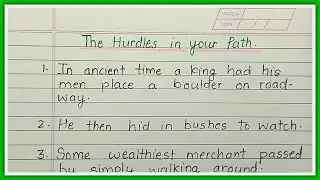 The Hurdles in your Path.
1. In ancient time a king had his
men place a boulder on road-
way.
2. He then hid in bushes to watch.
3. Some wealthiest merchant passed
by simply walking around.